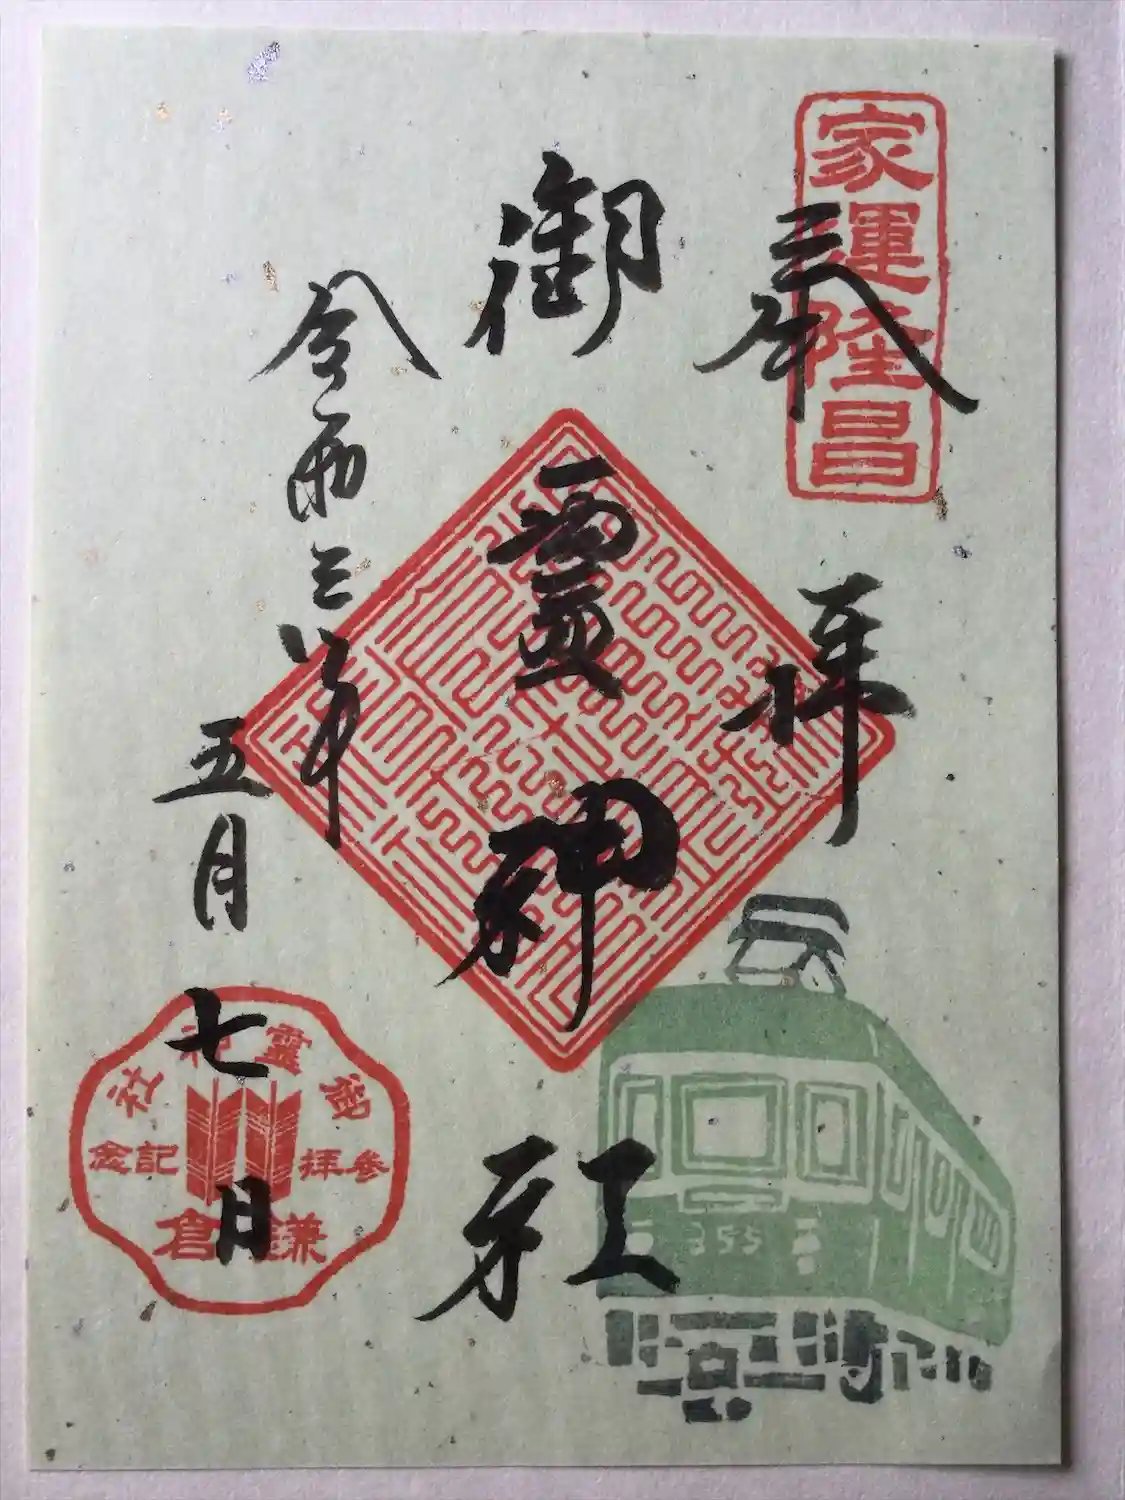 家運隆昌
奉拝
御霊神社
令和三年
五月七日
御靈神社
参拝記念
鎌倉
355